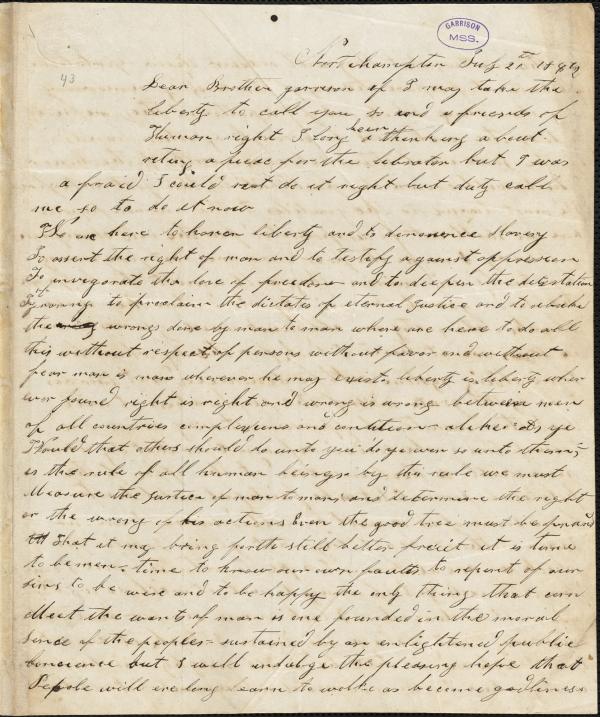 GARRISON
MSS.
43
Northampton July 21
Dear Brother garrison if I may take the
liberty to call you so and a friends of
Human right I long been a thinking about
riting a piece for the librator but I was
a fraid I could not do it right but duty call
me so to do it now
here to honor liberty and to denounce slavery
To assert the right of man and to testify against oppression
To invigorate the love of freedom and to deepen the detestation
of
Tyranny to proclaim the dictates of eternal Justice and to rebuke
the wrongs done by man to man where are here to do all
this without respect of persons without favor and without
fear man is man wherever he may exist. liberty is liberty wher
ever found right is right and wrong is wrong between men
of all countries complexions and condition alike As ye
Would that others should do unto you do ye even so unto them
is the rule of all human beings by this rule we must
Measure the Justice of man to man and determine the right
or the wrong of his actions Even the good tree must be
that it may bring forth still better fruit it is time
to be men time to know our own faults to repent of our
sins to be wise and to be happy the only thing that can
Meet the wants of man is one founded in the moral
sence of the peoples sustained by an enlightened public
conciance but I will indulge the pleasing hope that
Pepole will ere long learn to walk as become godliness